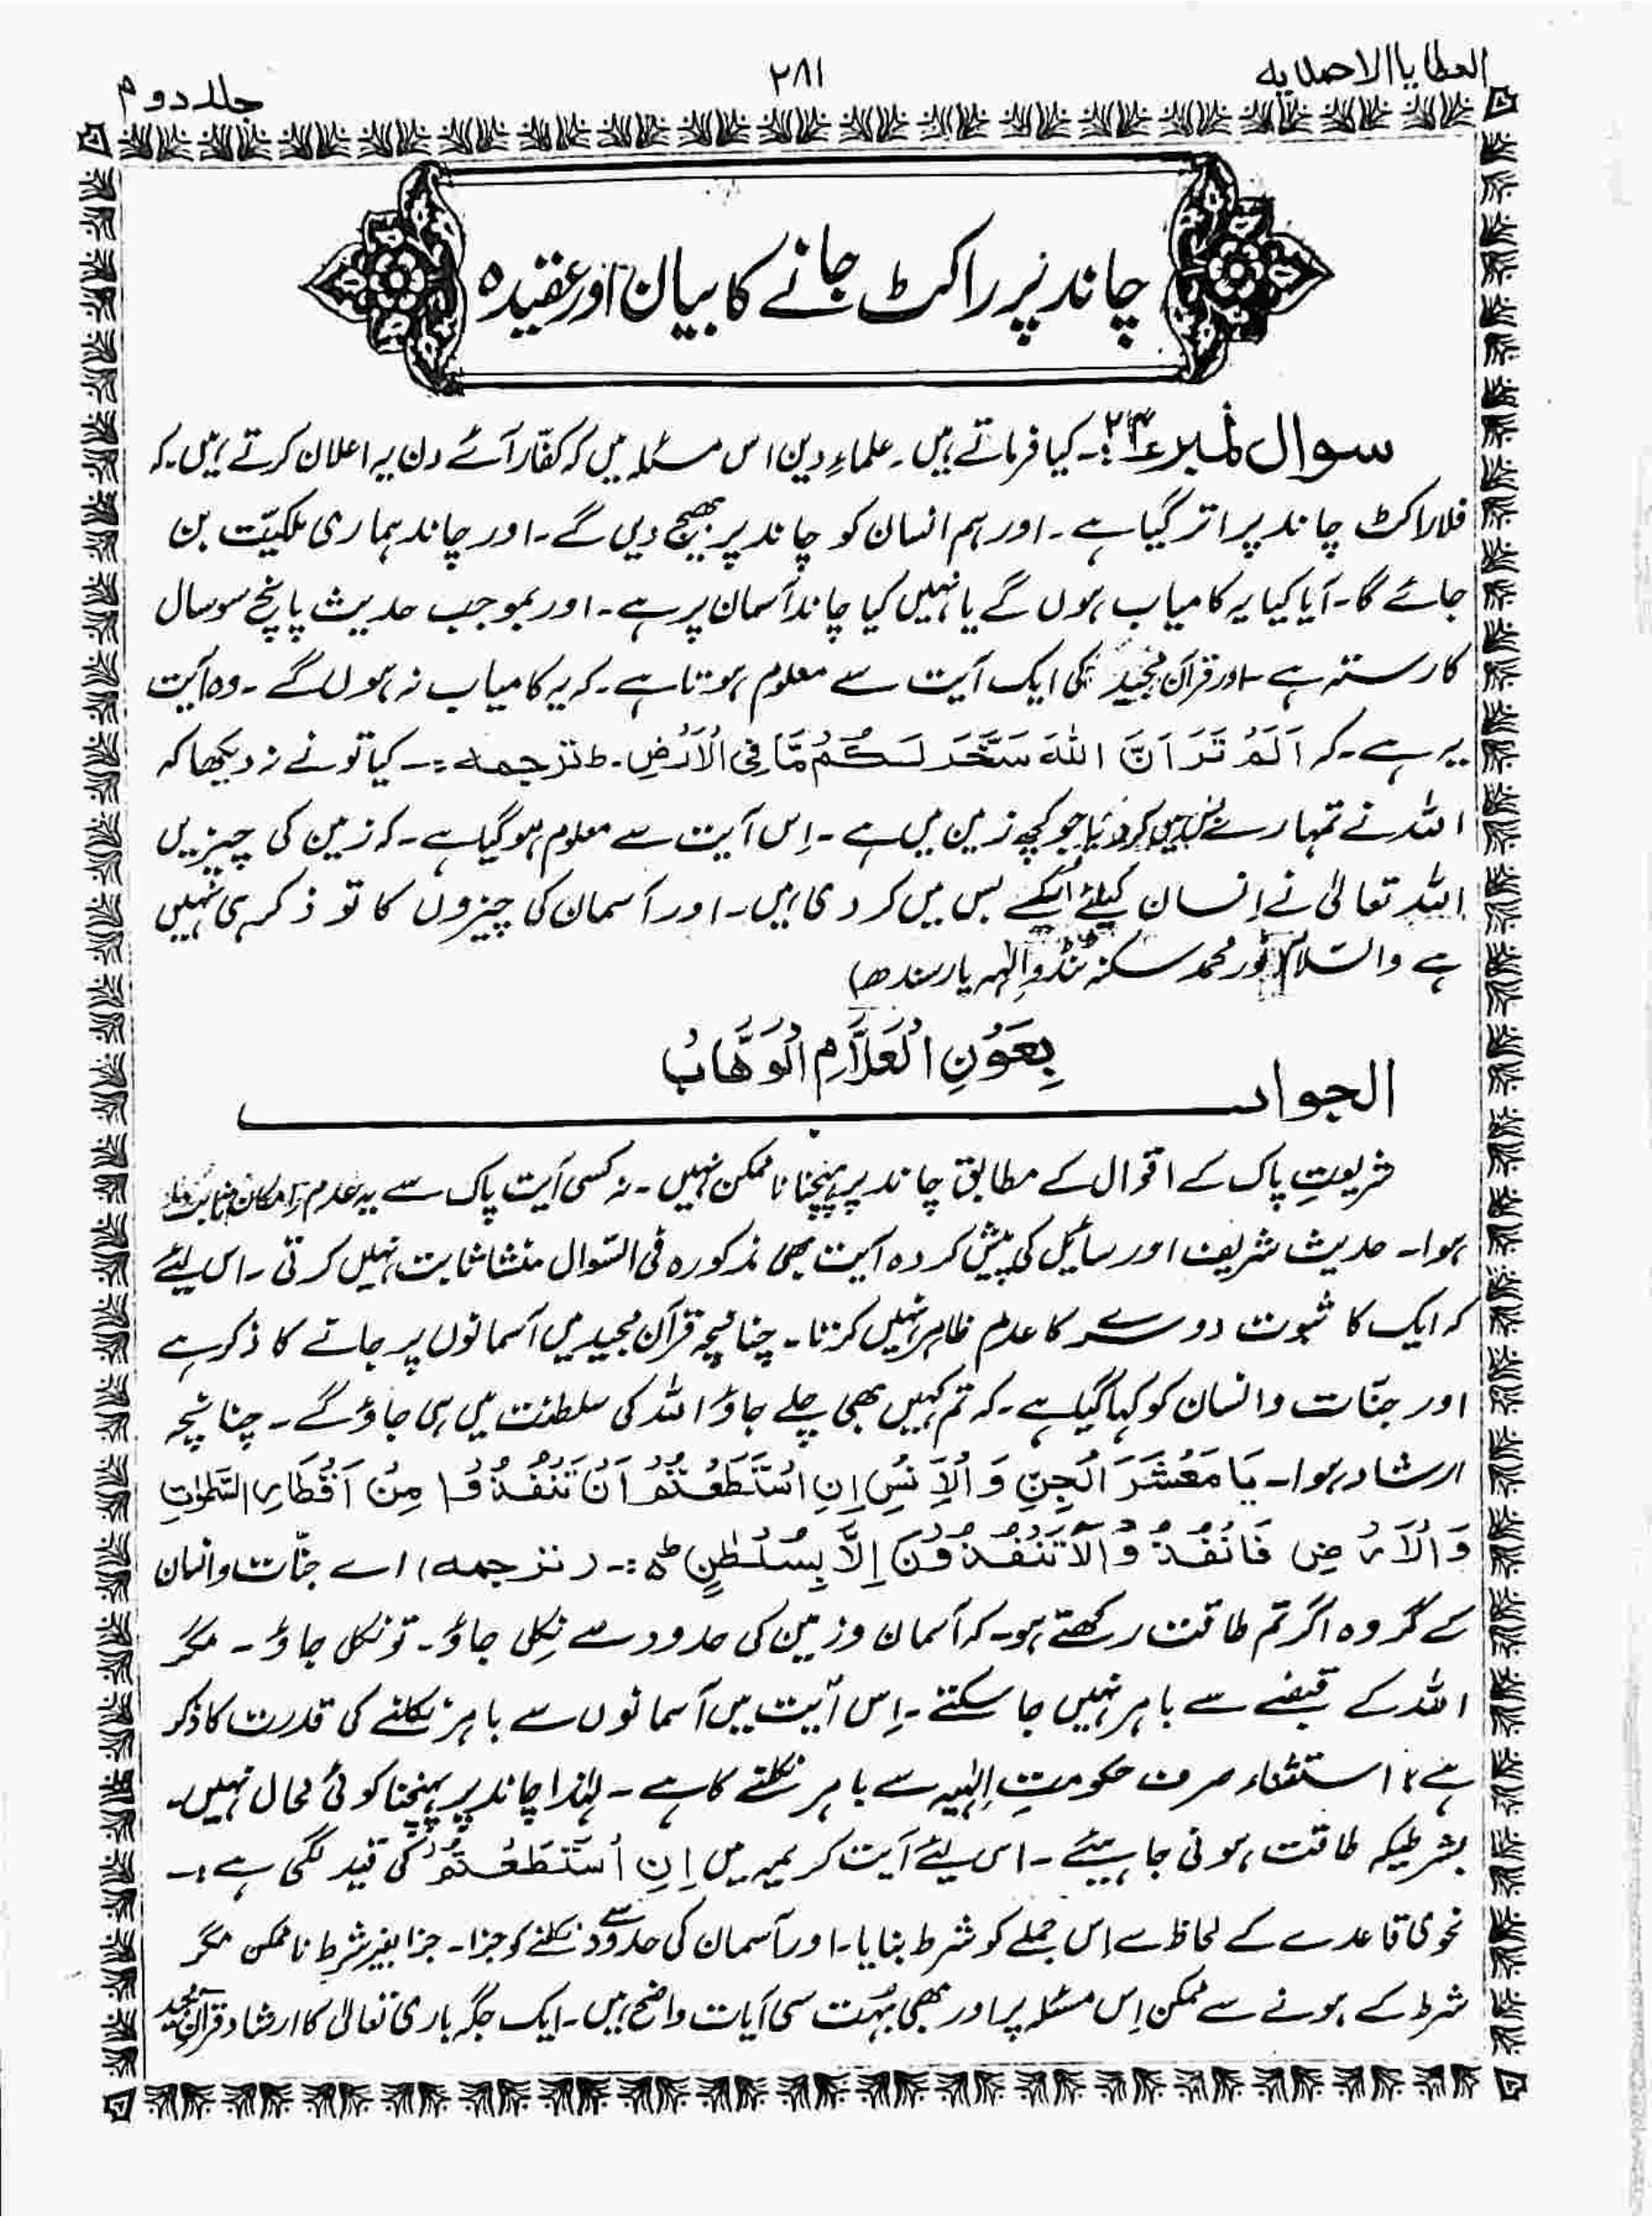 العطایا الاحمدیہ
۲۸۱
جلد دوم
چاند پر راکٹ جانے کا بیان اور عقیدہ
سوال نمبر ۲۴:۔ کیا فرماتے ہیں۔ علماءِ دین اس مسئلہ میں کہ کفّار آئے دن یہ اعلان کرتے ہیں۔ کہ
فلاں راکٹ چاند پر اتر گیا ہے۔ اور ہم انسان کو چاند پر بھیج دیں گے۔ اور چاند ہماری ملکیّت بن
جائے گا۔ آیا کیا یہ کامیاب ہوں گے یا نہیں کیا چاند آسمان پر ہے۔ اور بموجب حدیث پانچ سو سال
کا رستہ ہے۔ اور قرآن مجید کی ایک آیت سے معلوم ہوتا ہے۔ کہ یہ کامیاب نہ ہوں گے۔ وہ آیت
یہ ہے۔ کہ اَلَمْ تَرَ اَنَّ اللہَ سَخَّرَ لَكُمْ مَّا فِی الْاَرْضِ۔ ط ترجمہ :۔ کیا تو نے نہ دیکھا کہ
اللہ نے تمہارے بس میں کر دیا جو کچھ زمین میں ہے۔ اِس آیت سے معلوم ہو گیا ہے۔ کہ زمین کی چیزیں
اللہ تعالیٰ نے اِنسان کیلئے اسکے بس میں کر دی ہیں۔ اور آسمان کی چیزوں کا تو ذکر ہی نہیں
ہے والسّلام نور محمد سکنہ ٹنڈو الٰہ یار سندھ)
بِعَوْنِ الْعَلَّامِ الْوَهَّابُ
الجواب
شریعتِ پاک کے اقوال کے مطابق چاند پر پہنچنا ناممکن نہیں۔ نہ کسی آیت پاک سے یہ عدم اِمکان ثابت
ہوا۔ حدیث شریف اور سائل کی پیش کردہ آیت بھی مذکورہ فی السّوال منشا ثابت نہیں کرتی۔ اس لیئے
کہ ایک کا ثبوت دوسرے کا عدم ظاہر نہیں کرتا۔ چنانچہ قرآن مجید میں آسمانوں پر جانے کا ذکر ہے
اور جنّات و انسان کو کہا گیا ہے۔ کہ تم کہیں بھی چلے جاؤ اللہ کی سلطنت میں ہی جاؤ گے۔ چنانچہ
ارشاد ہوا۔ یَا مَعْشَرَ الْجِنِّ وَ الْاِنْسِ اِنِ اسْتَطَعْتُمْ اَنْ تَنْفُذُوْا مِنْ اَقْطَارِ السَّمٰوٰتِ
وَ الْاَرْضِ فَانْفُذُوْا لَا تَنْفُذُوْنَ اِلَّا بِسُلْطٰنٍ ط :۔ (ترجمہ) اے جنّات و انسان
کے گروہ اگر تم طاقت رکھتے ہو۔ کہ آسمان و زمین کی حدود سے نِکل جاؤ۔ تو نکل جاؤ۔ مگر
اللہ کے قبضے سے باہر نہیں جا سکتے۔ اِس آیت میں آسمانوں سے باہر نکلنے کی قدرت کا ذکر
ہے، استثناء صرف حکومتِ اِلٰہیہ سے باہر نکلنے کا ہے۔ لہٰذا چاند پر پہنچنا کوئی محال نہیں۔
بشرطیکہ طاقت ہونی چاہیئے۔ اسی لیئے آیت کریمہ میں اِنِ اسْتَطَعْتُمْ کی قید لگی ہے:۔
نحوی قاعدے کے لحاظ سے اس جملے کو شرط بنایا۔ اور آسمان کی حدود سے نکلنے کو جزا۔ جزا بغیر شرط ناممکن مگر
شرط کے ہونے سے ممکن اِس مسئلہ پر اور بھی بہُت سی آیات واضح ہیں۔ ایک جگہ باری تعالیٰ کا ارشاد قرآن مجید